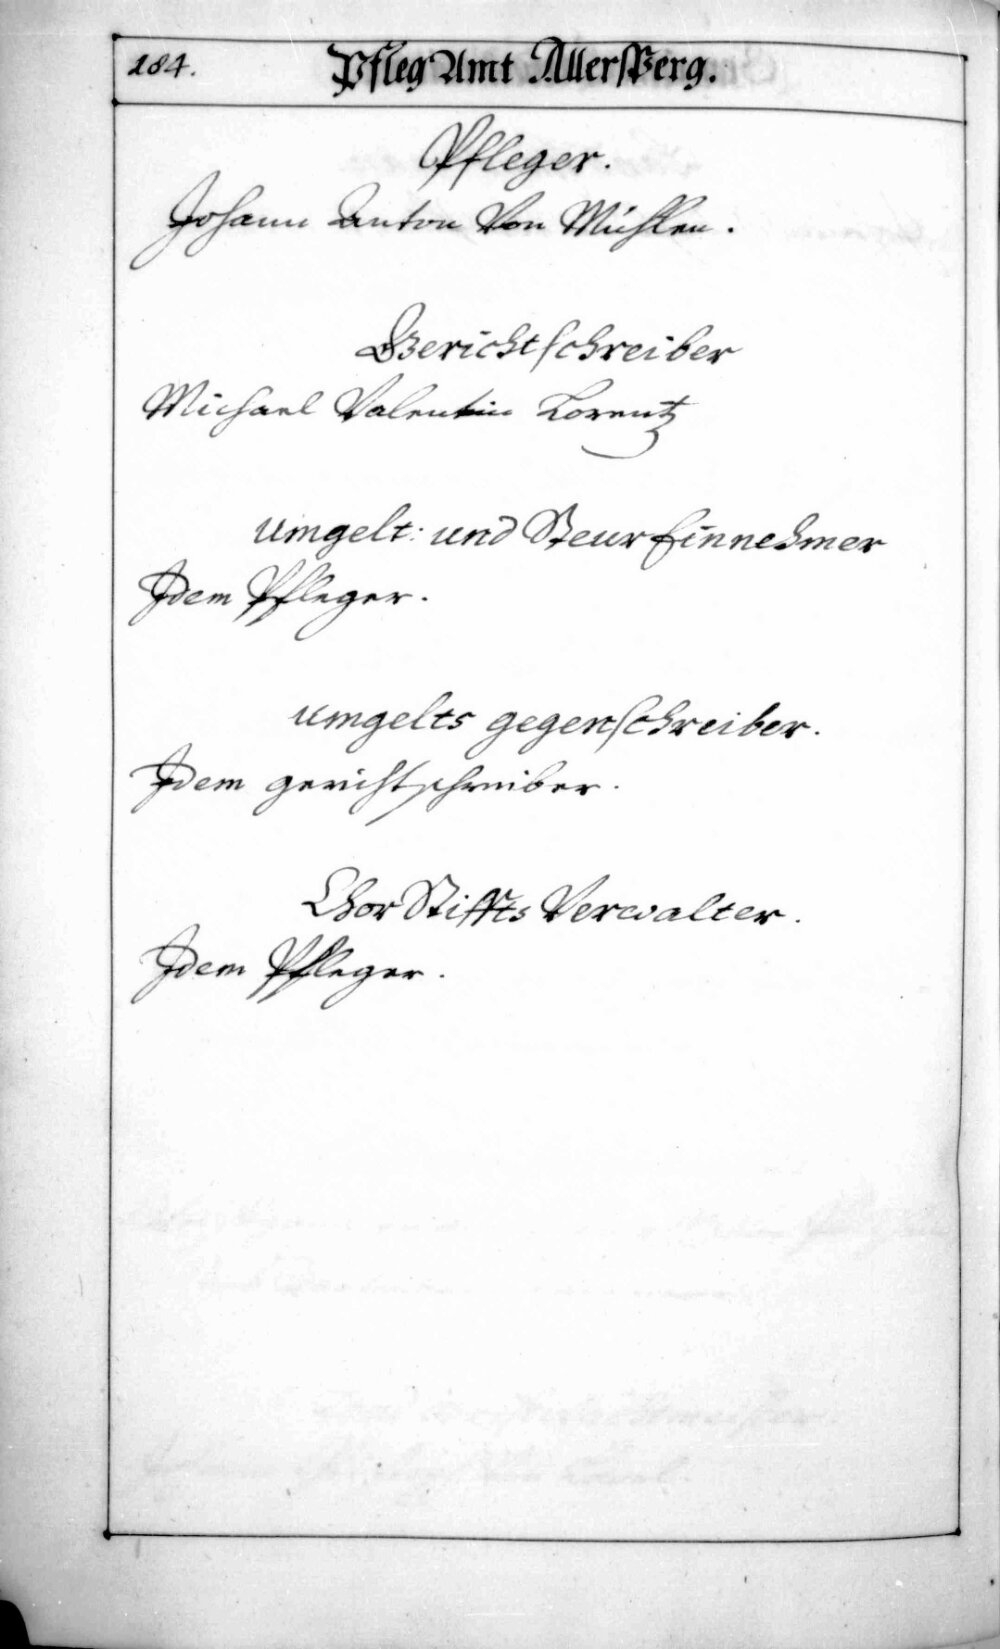 184.
Pfleg Amt Allersperg.
Pfleger.
Johann Anton Von Mühlen.
Gerichtschreiber
Michael Valentin Lorentz
Umgelt: und Steur Einnehmer
Idem Pfleger.
Umgelts gegenschreiber.
Idem gerichtschreiber.
Chor Stiffts Verwalter.
Idem Pfleger.